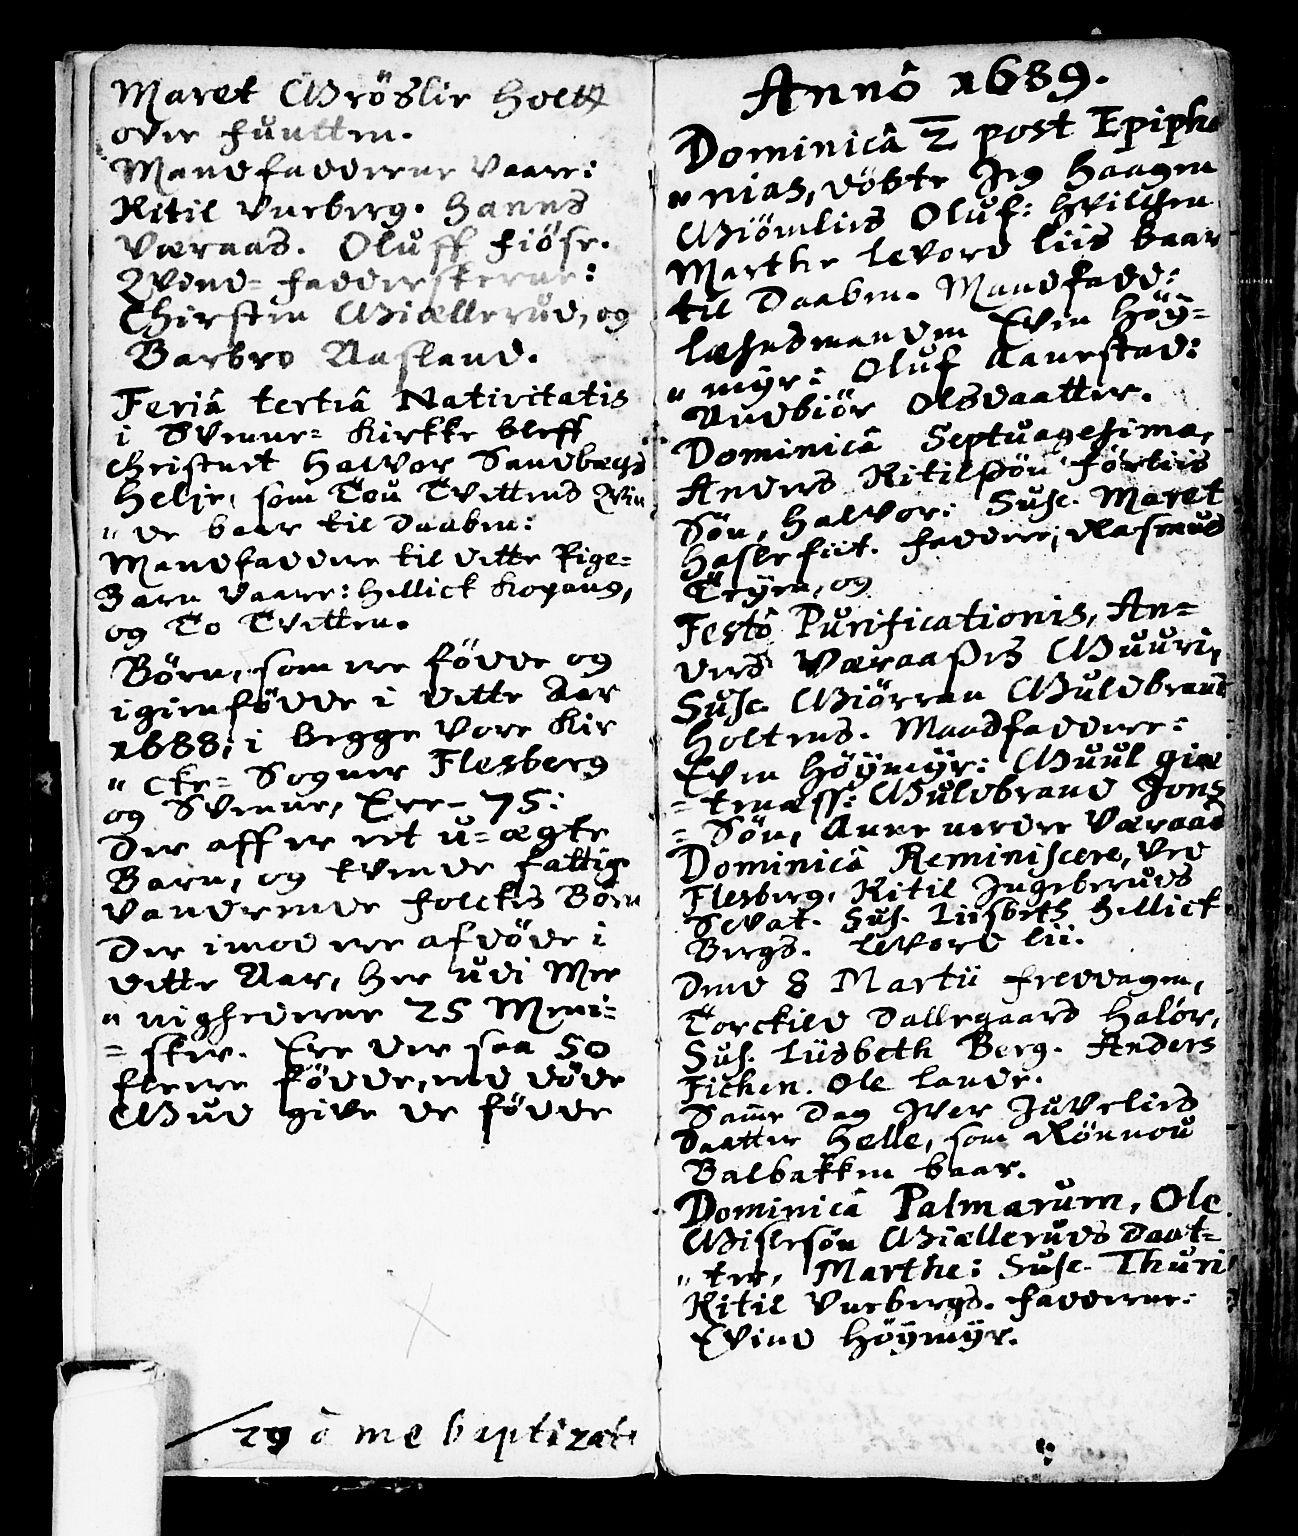 Maret Gröslie holtt
over funtten.
Mandfadderne vaare:
Kitil Vueberg. Hanns
Væraas. Oluff Fiöse.
Qvind= fadderskerne:
Chirstin Giellerud, og
Barbro Aasland.
Feriâ tertiâ Nativitatis
i Svenne= Kirkke bleff
Christnet Halvor Sandbægs
Helje, som Tou Tvettens Qvin
" de baar til Daaben:
Mandfaddere til dette Pige=
Barn vaare: Hellick Kopang,
og To Tvetten.
Börn, som ere födde og
igienfödde i dette Aar
1688, i begge vore Kir
" cke= Sogner Flesberg
og Svenne, Ere- 75:
Der aff er eet u=ægte
Barn, og tvende fattige
vandrende folckis Börn
Der imod ere afdöde i
dette Aar, her udi Mee
" nighederne 25 Meni=
= sker. Ere der saa 50
fleere födde, end döde
Gud give de födde
29 â me baptizati
Annô 1689.
Dominicâ 2 post Epipha
" nias, döbte Jeg Haagen
Giömliis Oluf:
Marthe Levord liis baar
til Daaben. Mandfadd:
Lehnsmanden Even Höÿ=
" mÿr: Oluf Aanestad:
Andbiör Olsdaatter.
Dominicâ Septuagesima,
Anders Kitilsön Förliis
Sön, Halvor: Susc. Maret
Haslefiit. Faddere, Rasmus
Trÿen, og
Festô Purificationis, An=
ders Væraasis Guuri,
Susc. Giörran Guldbrand
Holtens. Maadfaddere:
Even Höÿmÿr: Guul giæ
= tenæss: Guldbrand Jons
= Sön, Aune nerdre Væraas
Dominicâ Reminiscere, ved
Flesberg, Kitil Ingeberuds
Sevat. Sus. Liisbeth Hellick
Bergs. Levord lii.
Dend 8 Martii Fredagen,
Torckild Dallegaard Halör,
Sus. Lüsbeth Berg. Anders
Fichen. Ole Lande.
Same Dag Iver Juveliis
Daatter Helle, som Rönnou
Balbakken baar.
Dominicâ Palmarum, Ole
Gislesön Gielleruds Daat=
" ter, Marthe: Susc. Thuri
Kitil Vuebergs. Fadderne:
Evind Höÿmÿr.